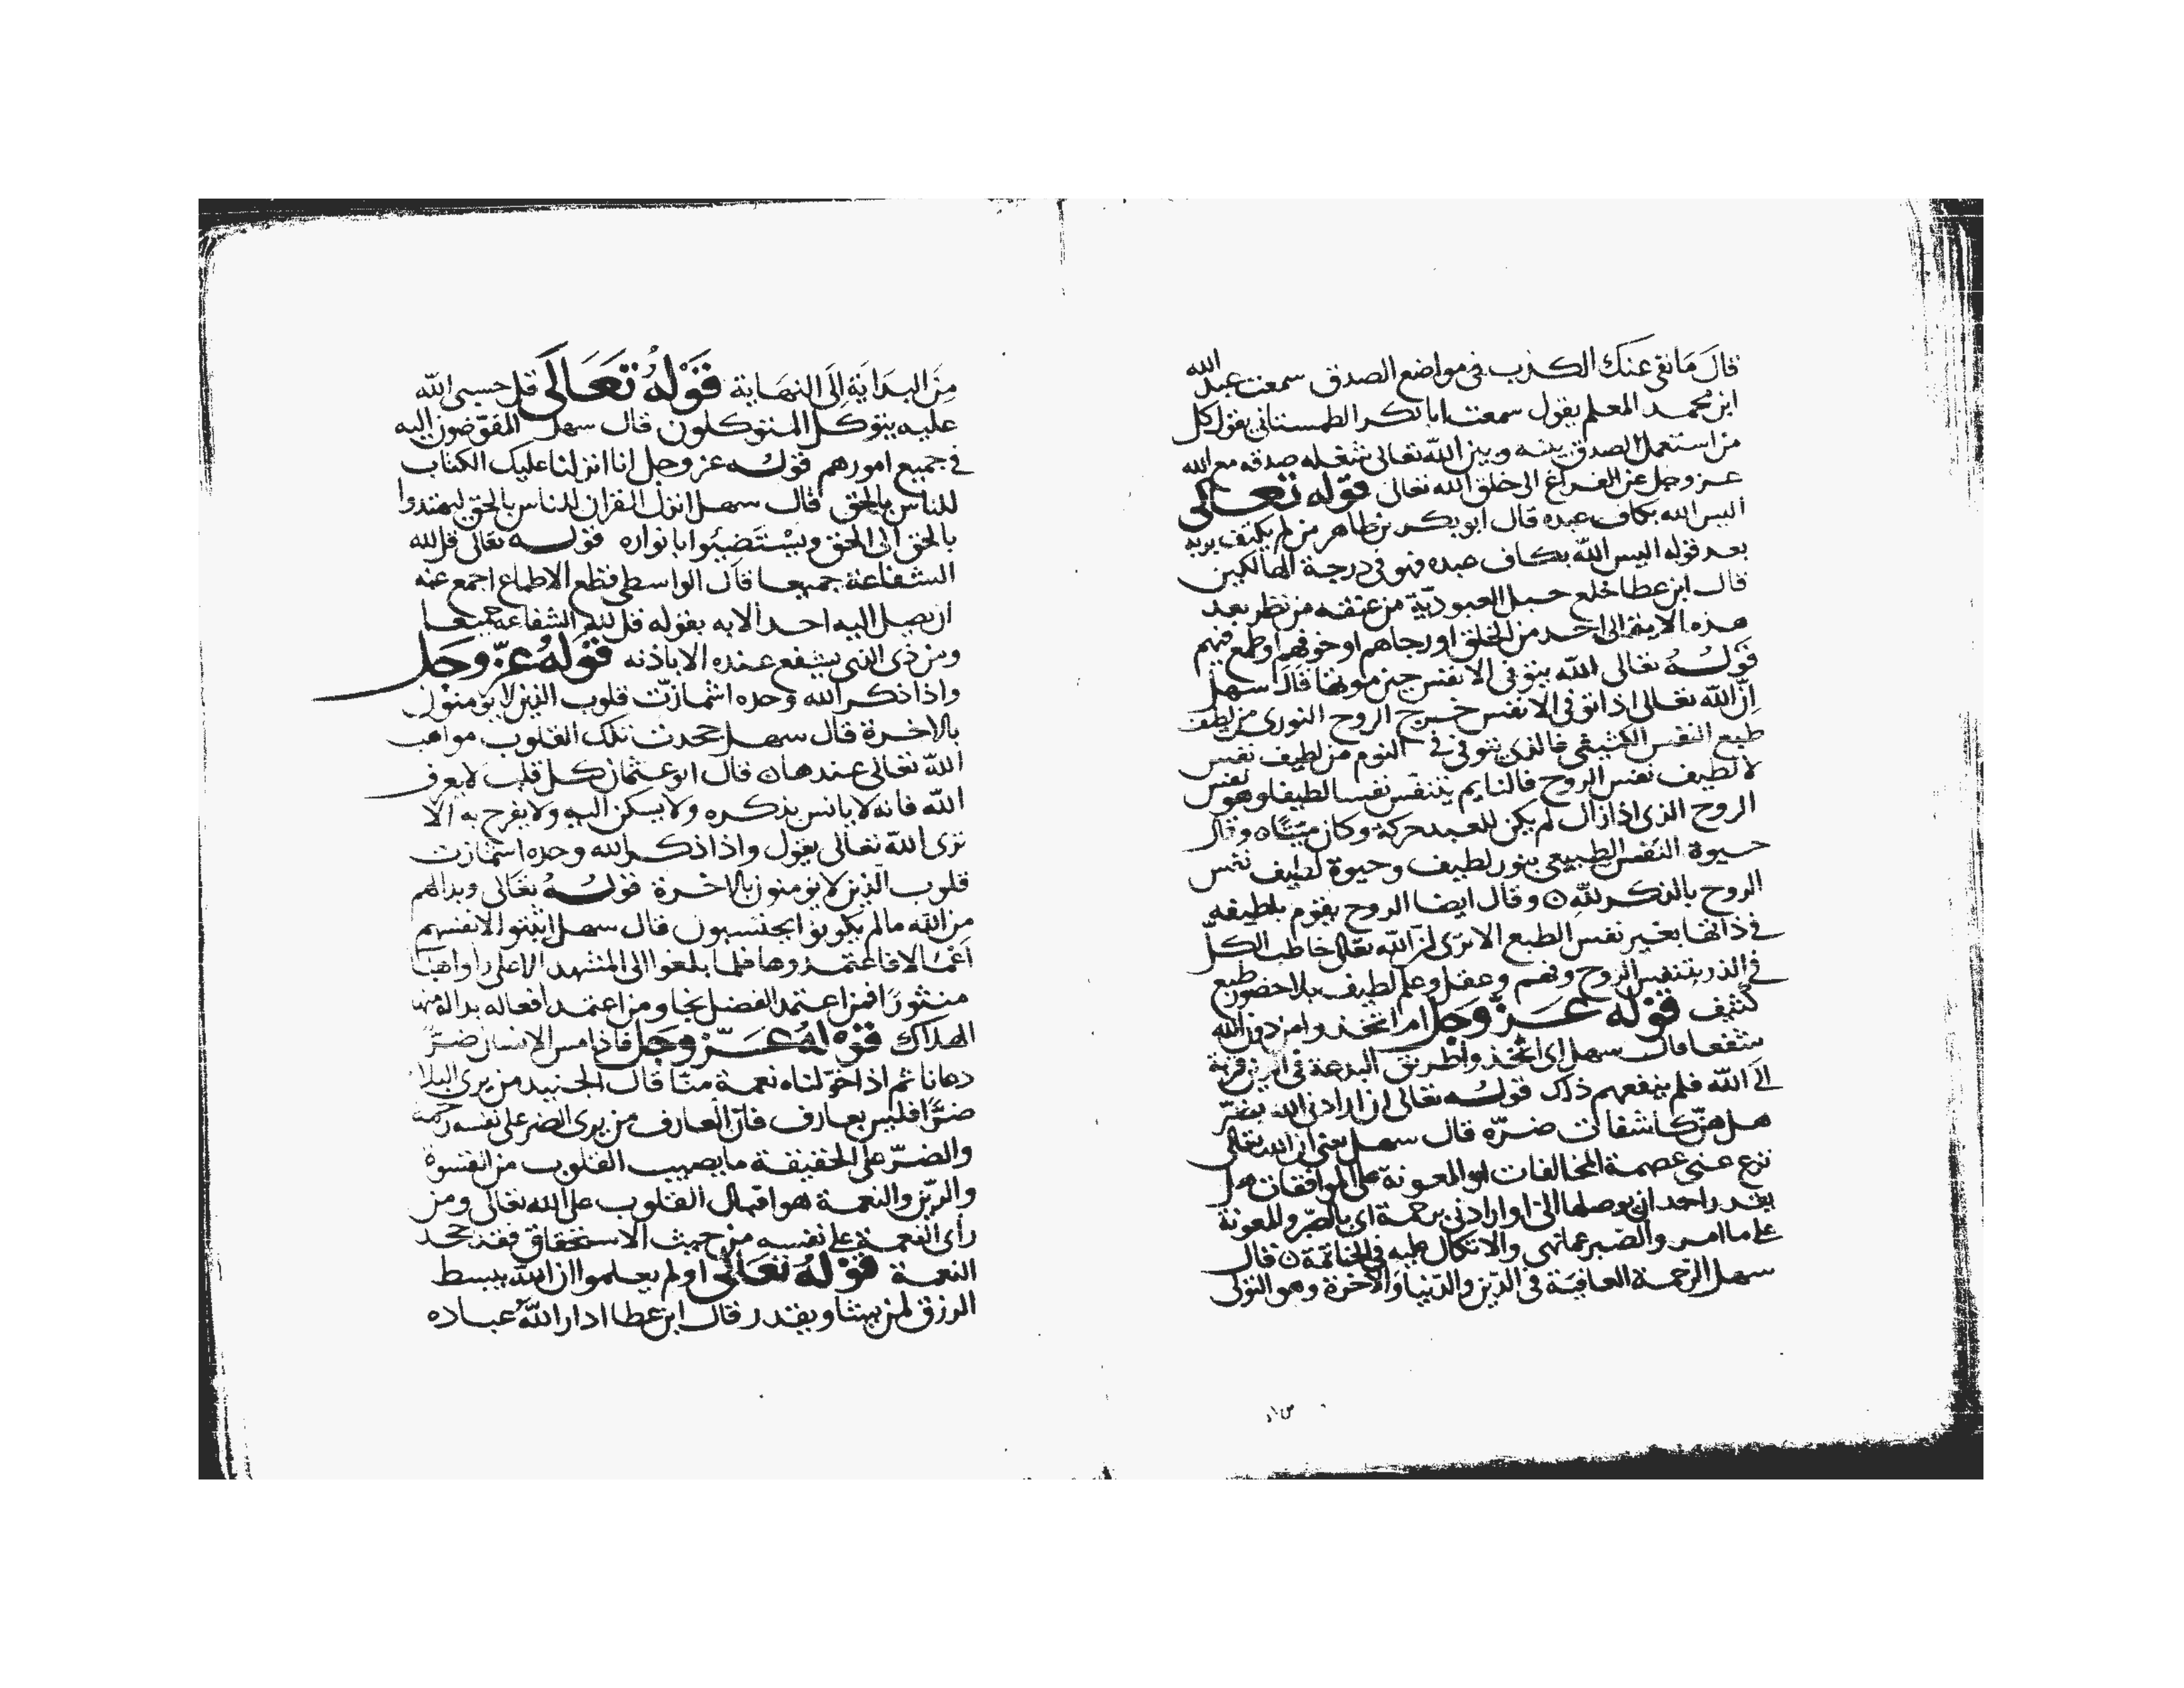 قالَ مَا نفى عنك الكذب في مواضع الصدق سمعت عبد الله
ابن محمد المعلم يقول سمعت ابا بكر الطمستاني يقول كل
من استعمل الصدق بينه وبين الله تعالى شغله صدقه مع الله
عز وجل عن الفراغ الى خلق الله تعالى قوله تعالى
اليس الله بكاف عبده قال ابو بكر بن طاهر من لم يكتف بربه
بعد قوله اليس الله بكاف عبده فهو في درجة الهالكين
قال ابن عطا خلع حبل العبوديّة من عنقه من نظر بعد
هذه الاية الى احد من الخلق او رجاهم او خوفهم او طمع فيهم
قوله تعالى الله يتوفى الانفس حين موتها قال سهل
انّ الله تعالى اذا توفى الانفس خرج الروح النورى من لطيف
طبع النفس الكثيفى فالذي يتوفى في النوم من لطيف نفس
لا لطيف نفس الروح فالنايم يتنفّس نفسا لطيفا وهو نفس
الروح الذى اذا زال لم يكن للعبد حركة وكان ميّتا ه وقال
حيوة النفس الطبيعي بنور لطيف وحيوة لطيف نفس
الروح بالذكر لله ن وقال ايضا الروح يقوم بلطيفه
في ذاتها بغير نفس الطبع الا ترى انّ الله تعالى خاطب الكلّ
في الذر بتنفس الروح وفهم وعقل وعلم لطيف بلا حضور طبع
كثيف قوله عزّ وجل ام اتخذوا من دون الله
شفعا قال سهل اى اتخذوا طريق البدعة في الدين قربة
الى الله فلم ينفعهم ذلك قوله تعالى ان ارادنى الله بضرّ
هل هنّ كاشفات ضرّه قال سهل يعنى ان الله تعالى
نزع عنى عصمة المخالفات او المعونة على الموافقات هل
يقدر احد ان يوصلها الىّ او ارادنى برحمة اى بالصّبر والمعونة
على ما امر والصّبر عما نهى والاتكال عليه في الخاتمة ن قال
سهل الرّحمة العافية في الدّين والدّنيا والاخرة وهو التولى
مِن البدَايَة الى النهَاية قَوْلهُ تَعَالَى قل حسبى الله
عليه يتوكل المتوكلون قال سهل المفوّضون اليه
في جميع امورهم قوله عز وجل انا انزلنا عليك الكتاب
للناس بالحق قال سهل انزل القران للناس بالحق ليهتدوا
بالحق الى الحق ويسْتَضيئوا بانواره قوله تعالى قل لله
الشفاعة جميعا قال الواسطى قطع الاطماع اجمع عنه
ان يصل اليه احد الا به بقوله قل لله الشفاعة جميعا
ومن ذى الذى يشفع عنده الا باذنه قَوْلهُ عزّ وجَل
واذا ذكر الله وحده اشمازّت قلوب الذين لا يومنون
بالاخرة قال سهل جحدت تلك القلوب مواهب
الله تعالى عندها ن قال ابو عثمان كل قلب لا يعرف
الله فانه لا يانس بذكره ولا يسكن اليه ولا يفرح به الا
ترى الله تعالى يقول واذا ذكر الله وحده اشمازت
قلوب الذين لا يومنون بالاخرة قوله تعَالى وبدا لهم
من الله مالم يكونوا يحتسبون قال سهل اثبتوا لانفسهم
اَعْمَالا فاعتمدوها فلما بلغوا الى المشهد الاعلى راواهبَا
منثورًا فمن اعتمد الفضل نجا ومن اعتمد افعاله بدا له منها
الهلاك قَوْلهُ عَزّ وجَل فاذا مس الانسان ضرّ
دعانا ثم اذا خوّلناه نعمة منّا قال الجنيد من يرى البلاء
ضرّا فليس بعارف فانّ العارف من يرى الضر على نفسه رحمة
والضرّ على الحقيقة ما يصيب القلوب من القسوة
والرّين والنعمة هو اقبال القلوب على الله تعالى ومن
راى النعمة على نفسه من حيث الاستحقاق فقد جحد
النعمة قَوْلهُ تعَالى اولم يعلموا ان الله يبسط
الرزق لمن يشا ويقدر قال ابن عطا ادار الله عباده